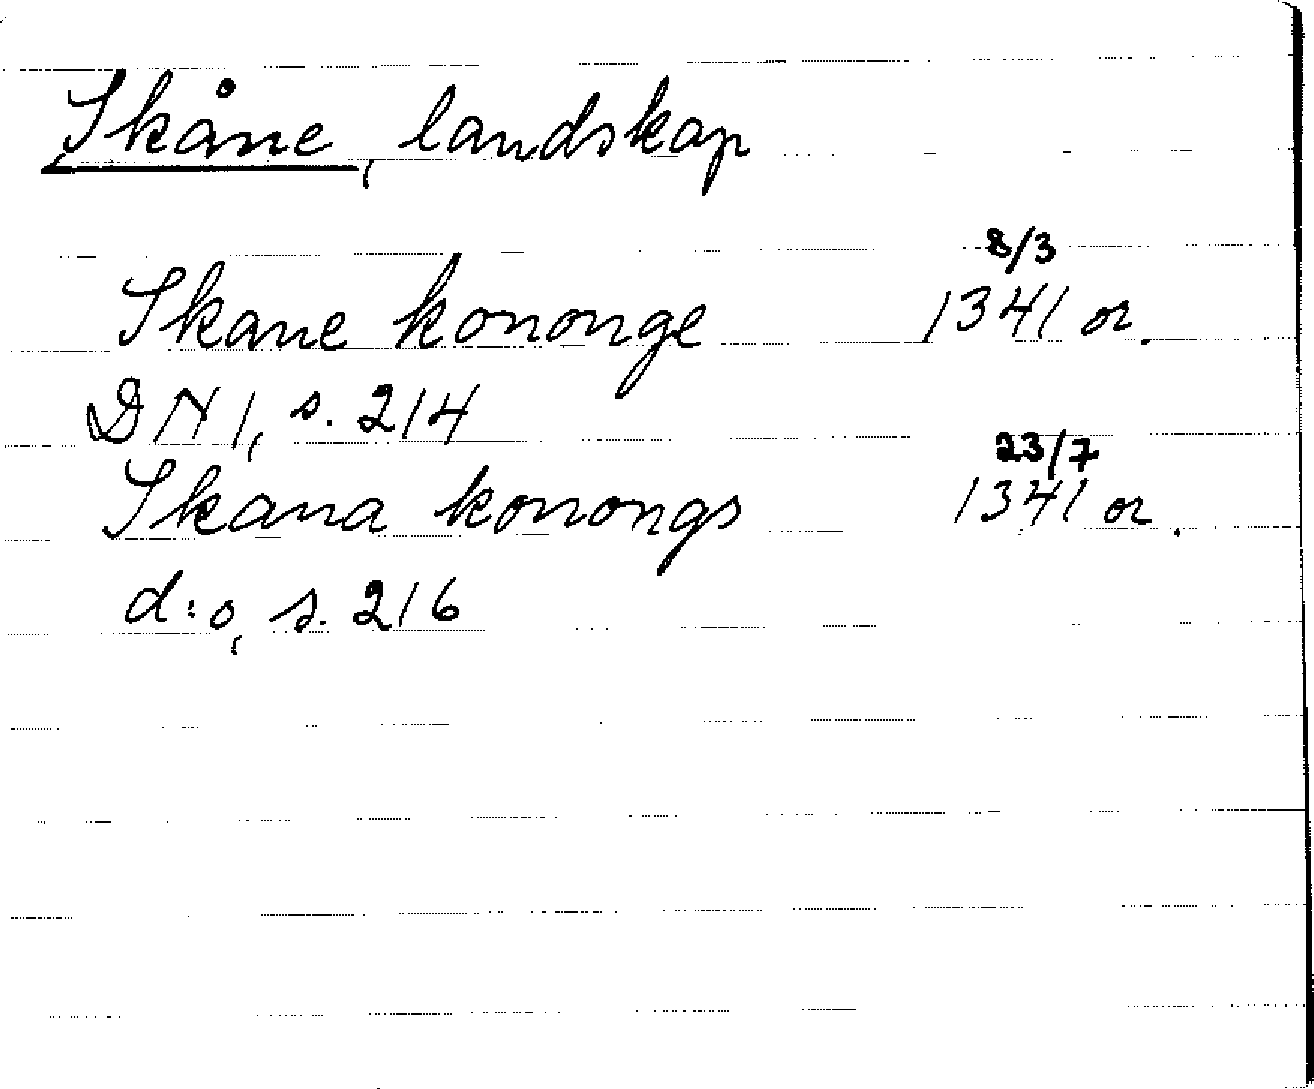 Skåne, landskap
Skane kononge 8/3 1341 or.
DN 1, s. 214
Skana konongs 23/7 1341 or.
d:o, s. 216